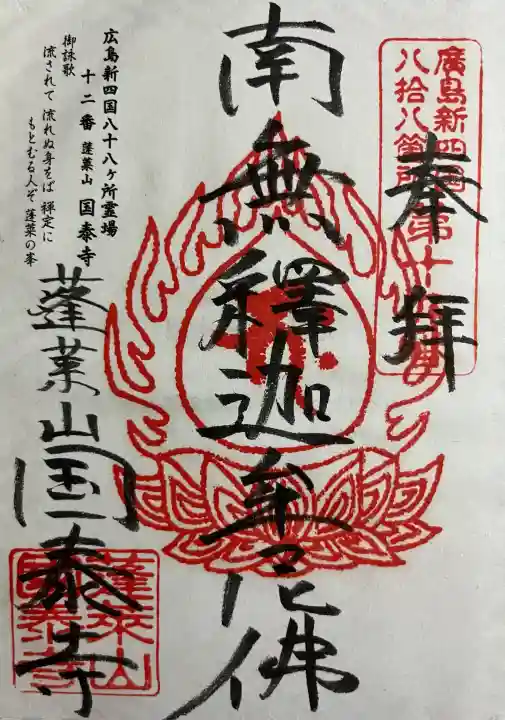 奉拝
廣島新四国
八拾八箇所
第十
南無釋迦牟尼佛
広島新四国八十八ヶ所霊場
十二番 蓬莱山 国泰寺
御詠歌
流されて 流れぬ身をば 禅定に
もとむる人ぞ 蓬莱の峯
蓬莱山
国泰寺
蓬莱山
国泰寺